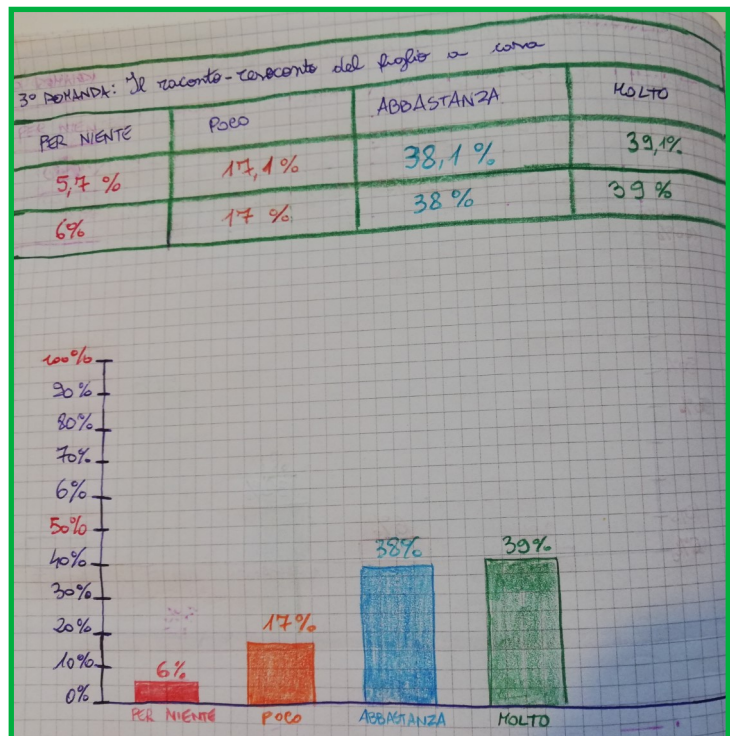 3° DOMANDA: Il raconto-resoconto del figlio a casa
PER NIENTE POCO ABBASTANZA MOLTO
5,7 % 17,1 % 38,1 % 39,1%
6% 17 % 38 % 39 %
100%
90%
80%
70%
6%
50%
40%
30%
20%
10%
0%
6% 17% 38% 39%
PER NIENTE POCO ABBASTANZA MOLTO